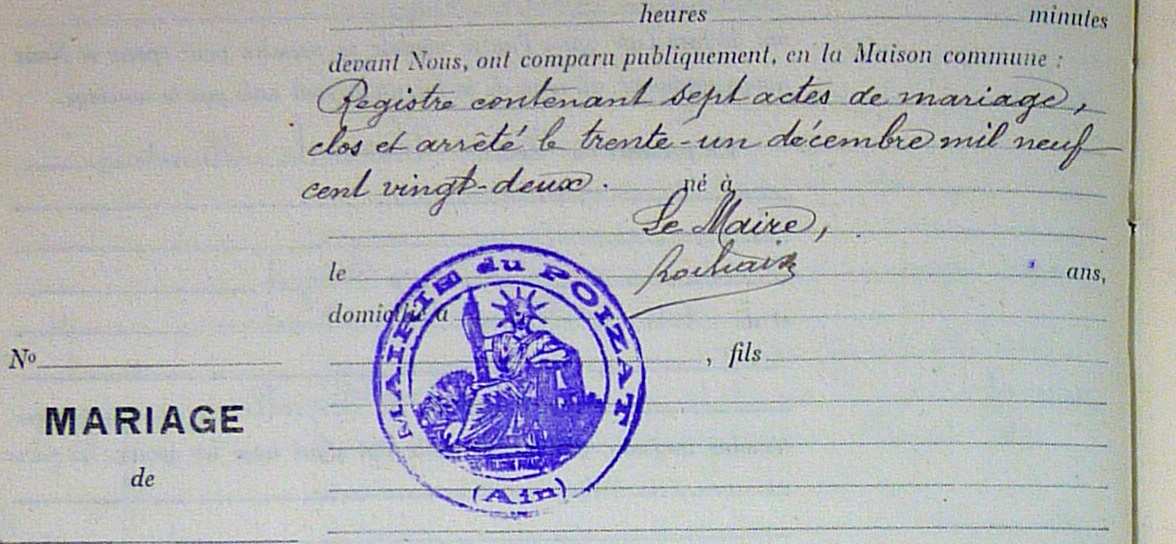 heures minutes
devant Nous, ont comparu publiquement, en la Maison commune :
Registre contenant sept actes de mariage,
clos et arrêté le trente-un décembre mil neuf
cent vingt-deux. né à
Le Maire,
le ans,
domicilié à
Nº , fils
MARIAGE
de
MAIRIE du POIZAT
(Ain)